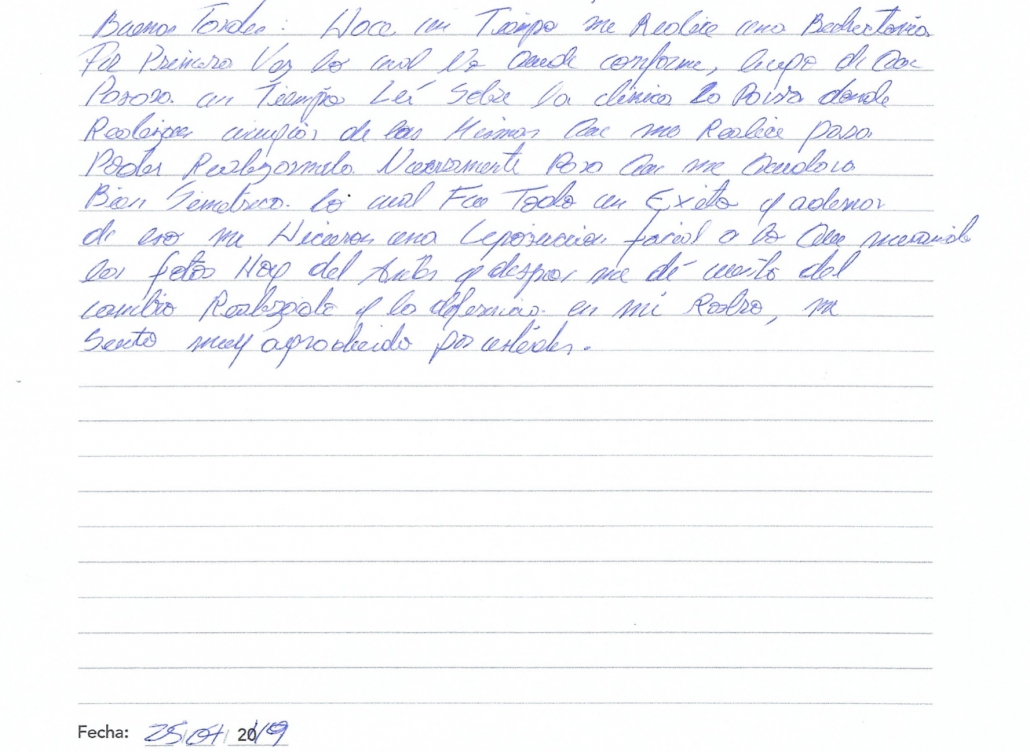 Buenas Tardes: Hace un Tiempo me Realice una Bichectomia
Por Primera Vez lo cual No Quede conforme, luego de Que
Pasara un Tiempo Leí Sobre la clinica La Poisa donde
Realizan cirugias de las Mismas Que me Realice para
Poder Realizarmela Nuevamente Para Que me Quedara
Bien Simetrico. lo cual Fue Todo un Exito y ademas
de eso me Hicieron una Liposuccion facial a lo Que mirando
las fotos Hoy del Antes y despues me dé cuenta del
cambio Realizado y la diferencia en mi Rostro, me
Siento muy agradecido por ustedes.
Fecha: 25/07/2019